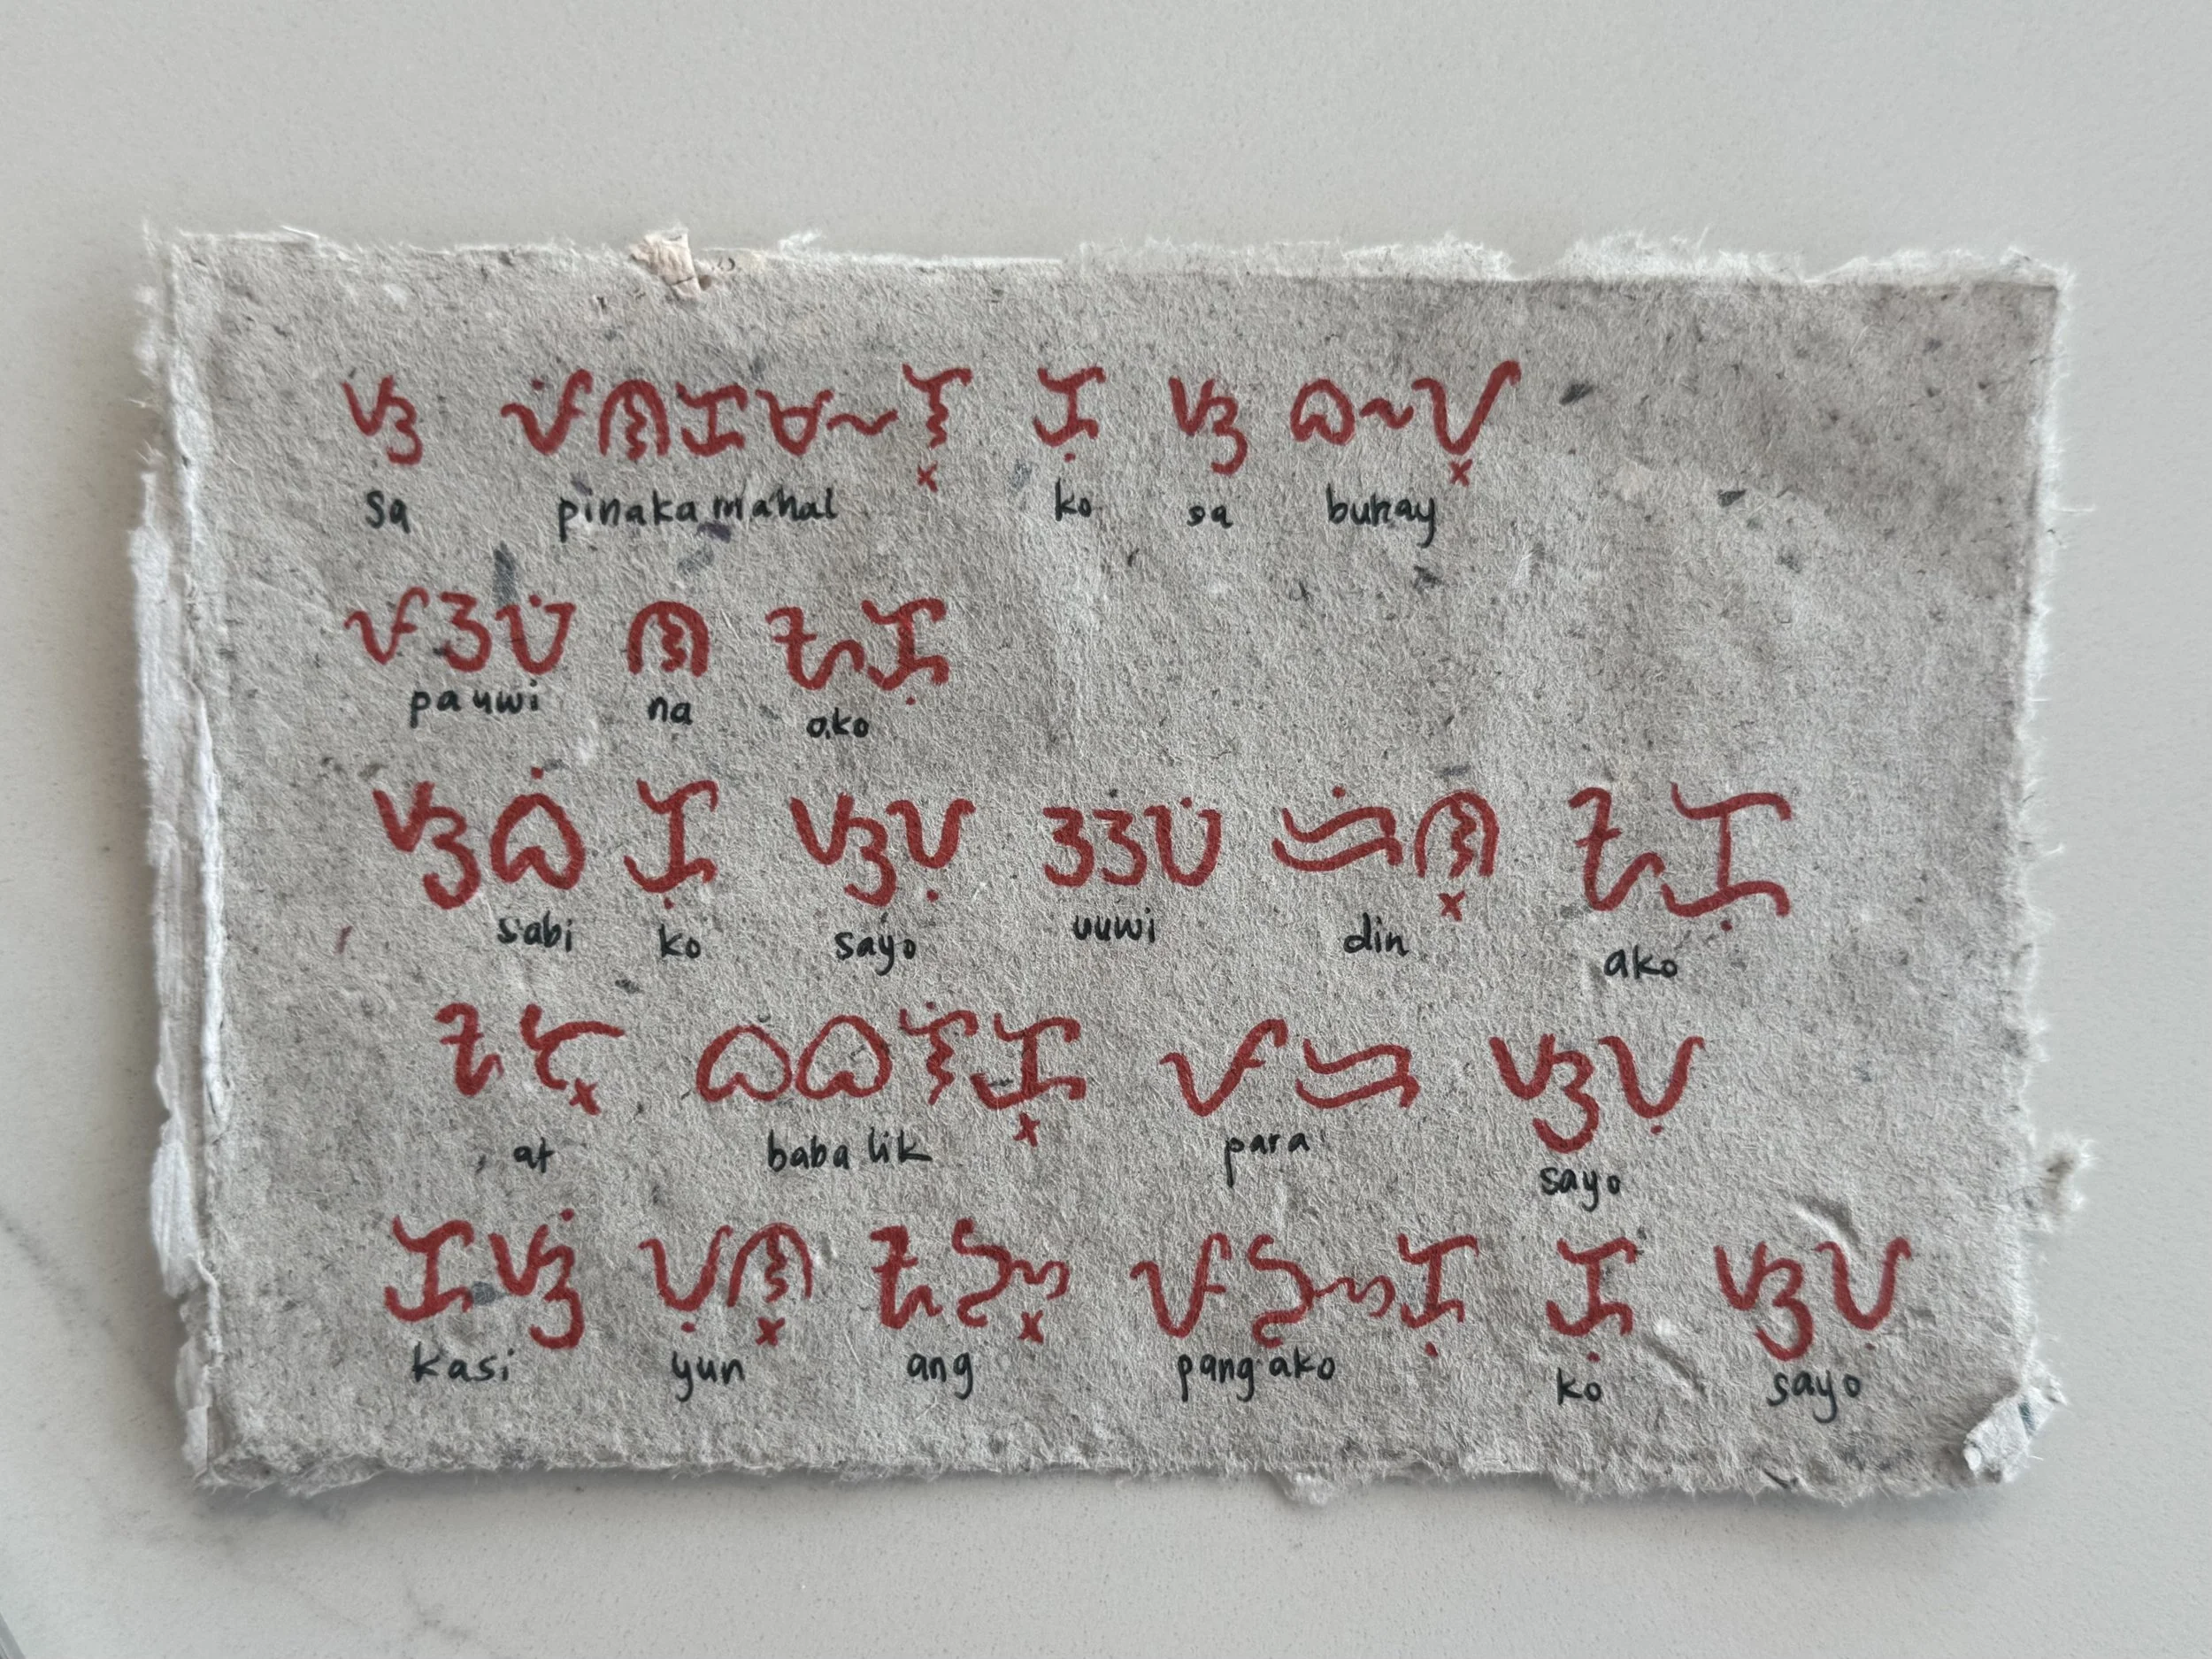 ᜐ ᜉᜒᜈᜃᜋᜑᜎ᜔ ᜃᜓ ᜐ ᜊᜑᜌ᜔
sa pinakamahal ko sa buhay
ᜉᜂᜏᜒ ᜈ ᜀᜃᜓ
pauwi na ako
ᜐᜊᜒ ᜃᜓ ᜐᜌᜓ ᜂᜂᜏᜒ ᜇᜒᜈ᜔ ᜀᜃᜓ
sabi ko sayo uuwi din ako
ᜀᜆ᜔ ᜊᜊᜎᜒᜃ᜔ ᜉᜇ ᜐᜌᜓ
at babalik para sayo
ᜃᜐᜒ ᜌᜓᜈ᜔ ᜀᜅ᜔ ᜉᜅᜃᜓ ᜃᜓ ᜐᜌᜓ
kasi yun ang pangako ko sayo